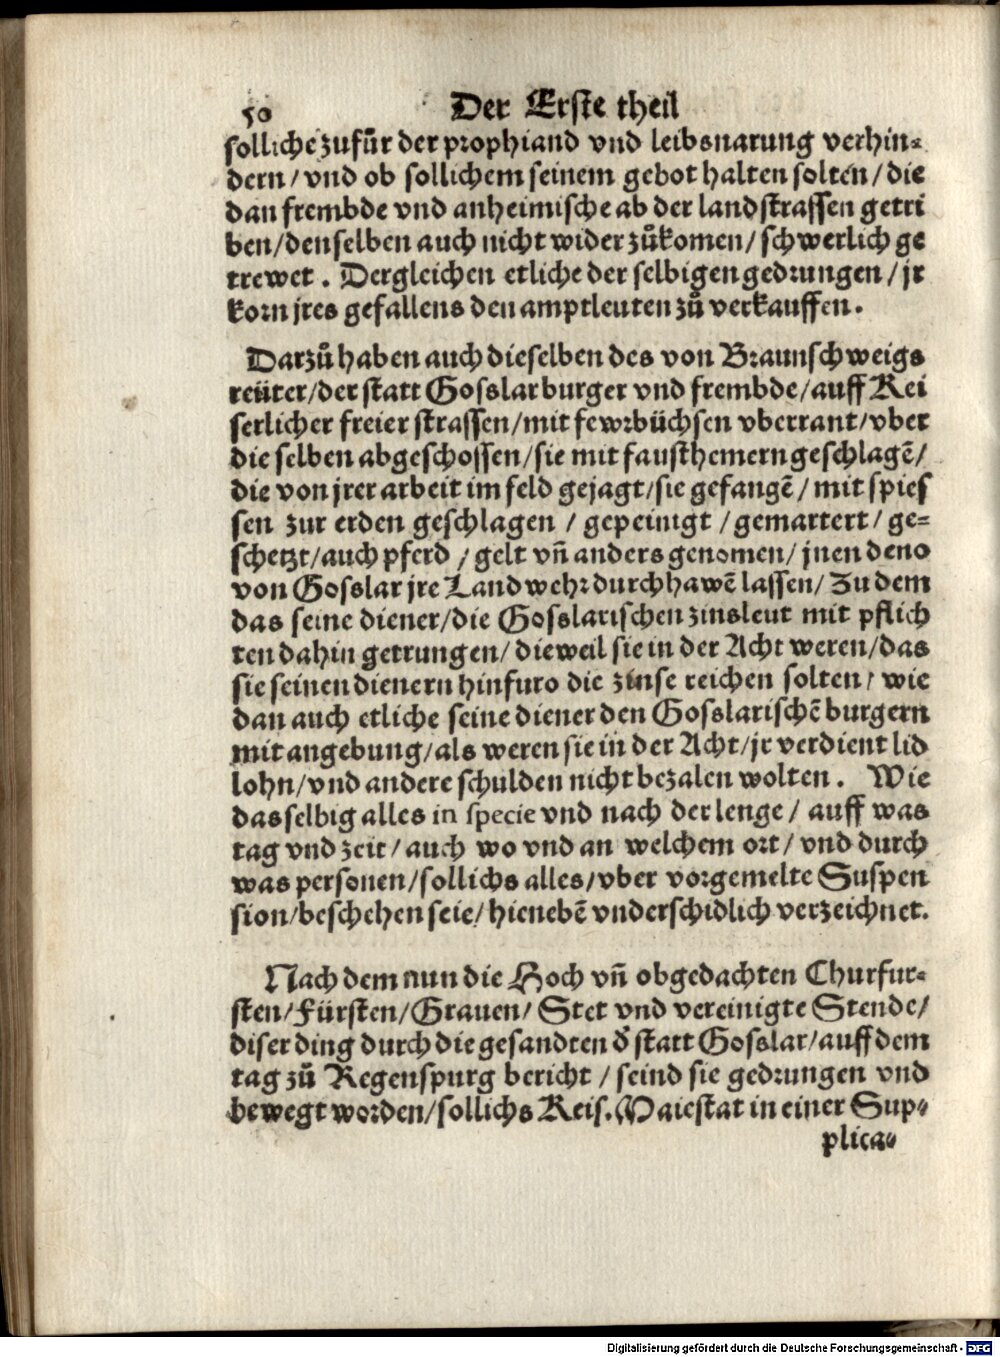 50 Der Erste theil
solliche zufůr der prophiand vnd leibsnarung verhin-
dern / vnd ob sollichem seinem gebot halten solten / die
dan frembde vnd anheimische ab der landstrassen getri
ben / denselben auch nicht wider zůkomen / schwerlich ge
trewet . Dergleichen etliche der selbigen gedrungen / jr
korn jres gefallens den amptleuten zů verkauffen .
Darzů haben auch dieselben des von Braunschweigs
reüter / der statt Gosslar burger vnd frembde / auff Kei
serlicher freier strassen / mit fewrbüchsen vberrant / vber
die selben abgeschossen / sie mit fausthemern geschlagẽ /
die von jrer arbeit im feld gejagt / sie gefangẽ / mit spies
sen zur erden geschlagen / gepeinigt / gemartert / ge-
schetzt / auch pferd / gelt vñ anders genomen / jnen deno
von Gosslar jre Landwehr durch hawẽ lassen / Zu dem
das seine diener / die Gosslarischen zinsleut mit pflich
ten dahin getrungen / dieweil sie in der Acht weren / das
sie seinen dienern hinfuro die zinse reichen solten / wie
dan auch etliche seine diener den Gosslarischẽ burgern
mit angebung / als weren sie in der Acht / jr verdient lid
lohn / vnd andere schulden nicht bezalen wolten . Wie
das selbig alles in specie vnd nach der lenge / auff was
tag vnd zeit / auch wo vnd an welchem ort / vnd durch
was personen / sollichs alles / vber vorgemelte Suspen
sion / beschehen seie / hienebẽ vnderschidlich verzeichnet.
Nach dem nun die Hoch vñ obgedachten Churfur-
sten / Fürsten / Grauen / Stet vnd vereinigte Stende /
diser ding durch die gesandten d̕ statt Gosslar / auff dem
tag zů Regenspurg bericht / seind sie gedrungen vnd
bewegt worden / sollichs Keis. Maiestat in einer Sup-
plica-
Digitalisierung gefördert durch die Deutsche Forschungsgemeinschaft - DFG